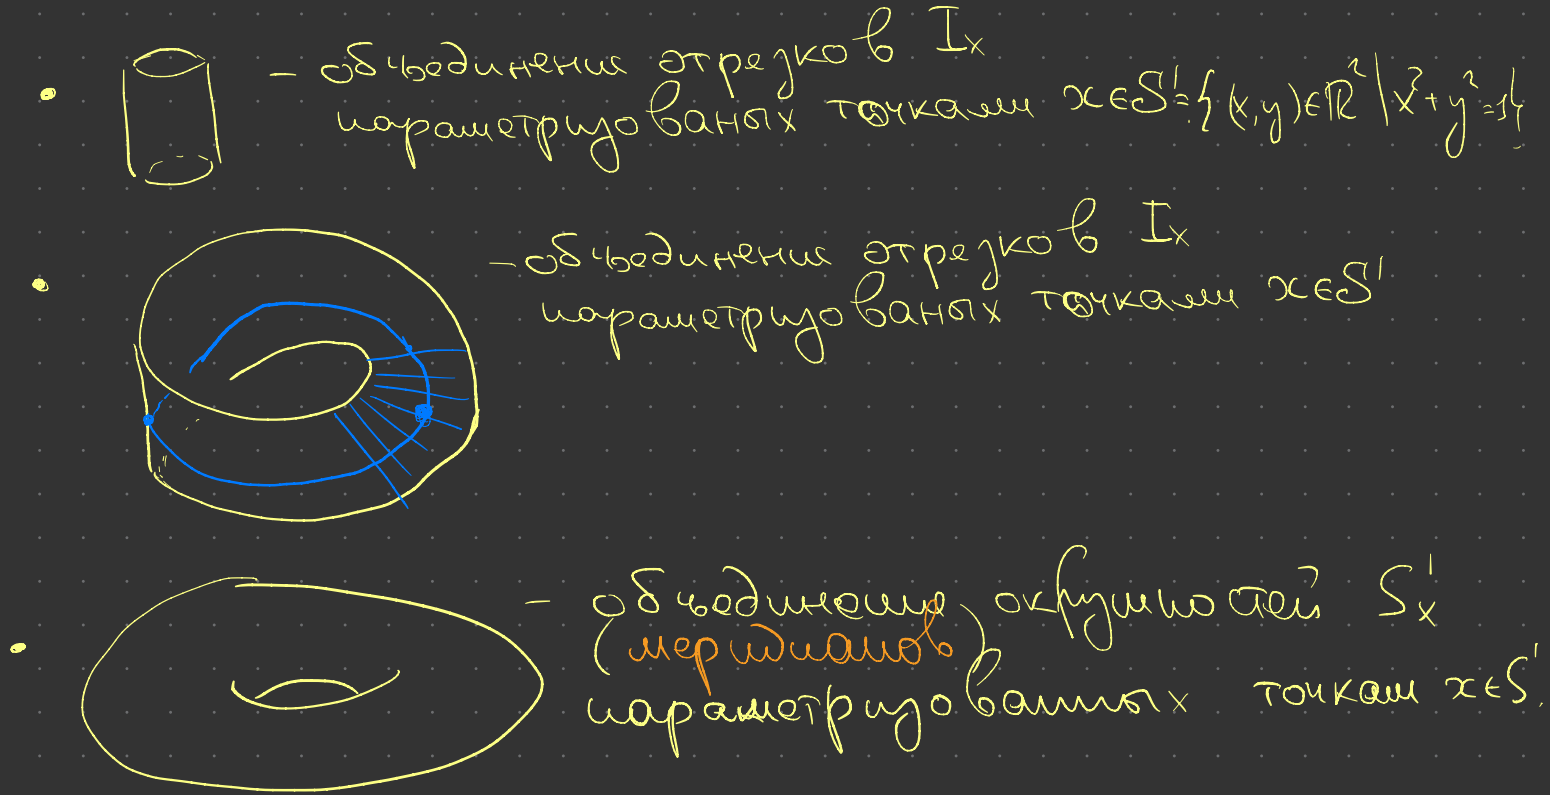 - объединения отрезков Iₓ
параметризованых точками x∈S¹={(x,y)∈ℝ²|x²+y²=1}
- объединения отрезков Iₓ
параметризованых точками x∈S¹
- объединение окружностей S¹ₓ
(меридианов)
параметризованных точкам x∈S¹